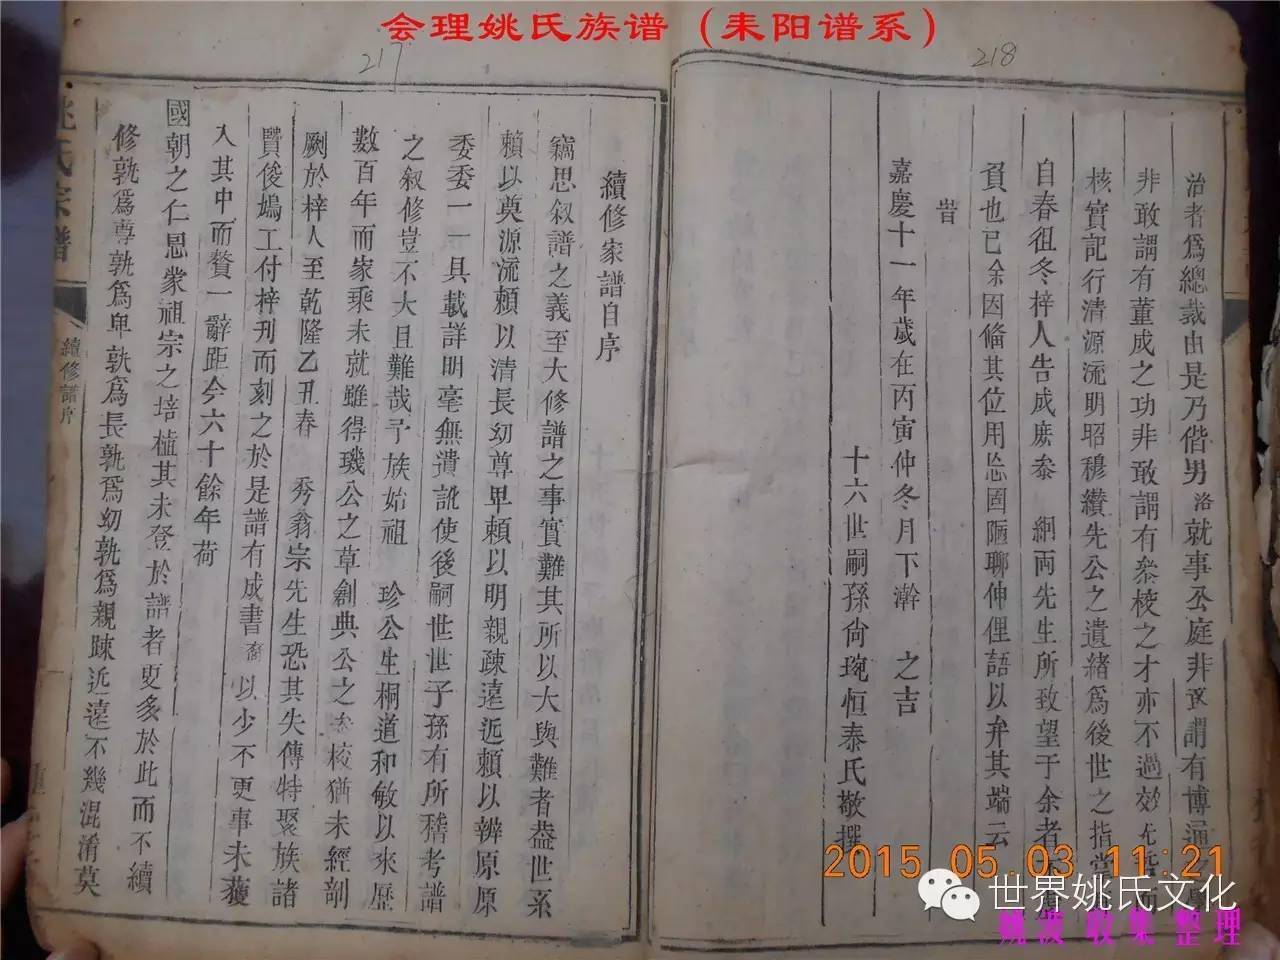 会理姚氏族谱（耒阳谱系）
217
218
治者爲總裁由是乃偕男洛就事公庭非敢謂有博通
非敢謂有董成之功非敢謂有叅校之才亦不過效
核實記行清源流明昭穆纘先公之遺緒爲後世之指
自春徂冬梓人告成庶叅 絅兩先生所致望于余者
負也已余因偹其位用忘固陋聊伸俚語以弁其端云
旹
嘉慶十一年歲在丙寅仲冬月下澣 之吉
十六世嗣孫尙琬恒泰氏敬撰
續修家譜自序
竊思叙譜之義至大修譜之事實難其所以大與難者葢世系
賴以奠源流賴以清長幼尊卑賴以明親疎遠近賴以辨原原
委委一一具載詳明毫無遺訛使後嗣世世子孫有所稽考譜
之叙修豈不大且難哉予族始祖 珍公生桐道和敏以來歷
數百年而家乘未就雖得璣公之草創典公之叅校猶未經剞
劂於梓人至乾隆乙丑春 秀翁宗先生恐其失傳特聚族諸
賢俊鳩工付梓刊而刻之於是譜有成書裔以少不更事未獲
入其中而贊一辭距今六十餘年荷
國朝之仁恩蒙祖宗之培植其未登於譜者更多於此而不續
修孰爲尊孰爲卑孰爲長孰爲幼孰爲親踈近遠不幾混淆莫
姚氏宗譜
續修譜序
2015.05.03 11:21
世界姚氏文化
姚波 收集 整理